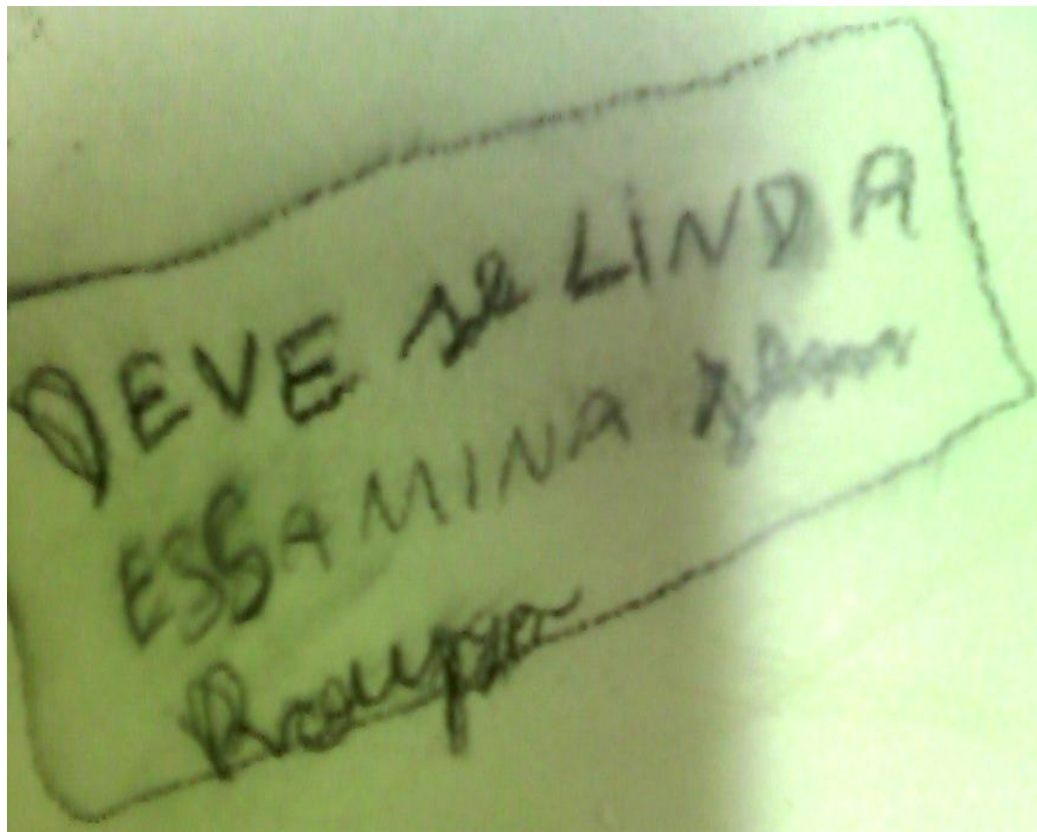 DEVE se LINDA
ESSA MINA
Roupa